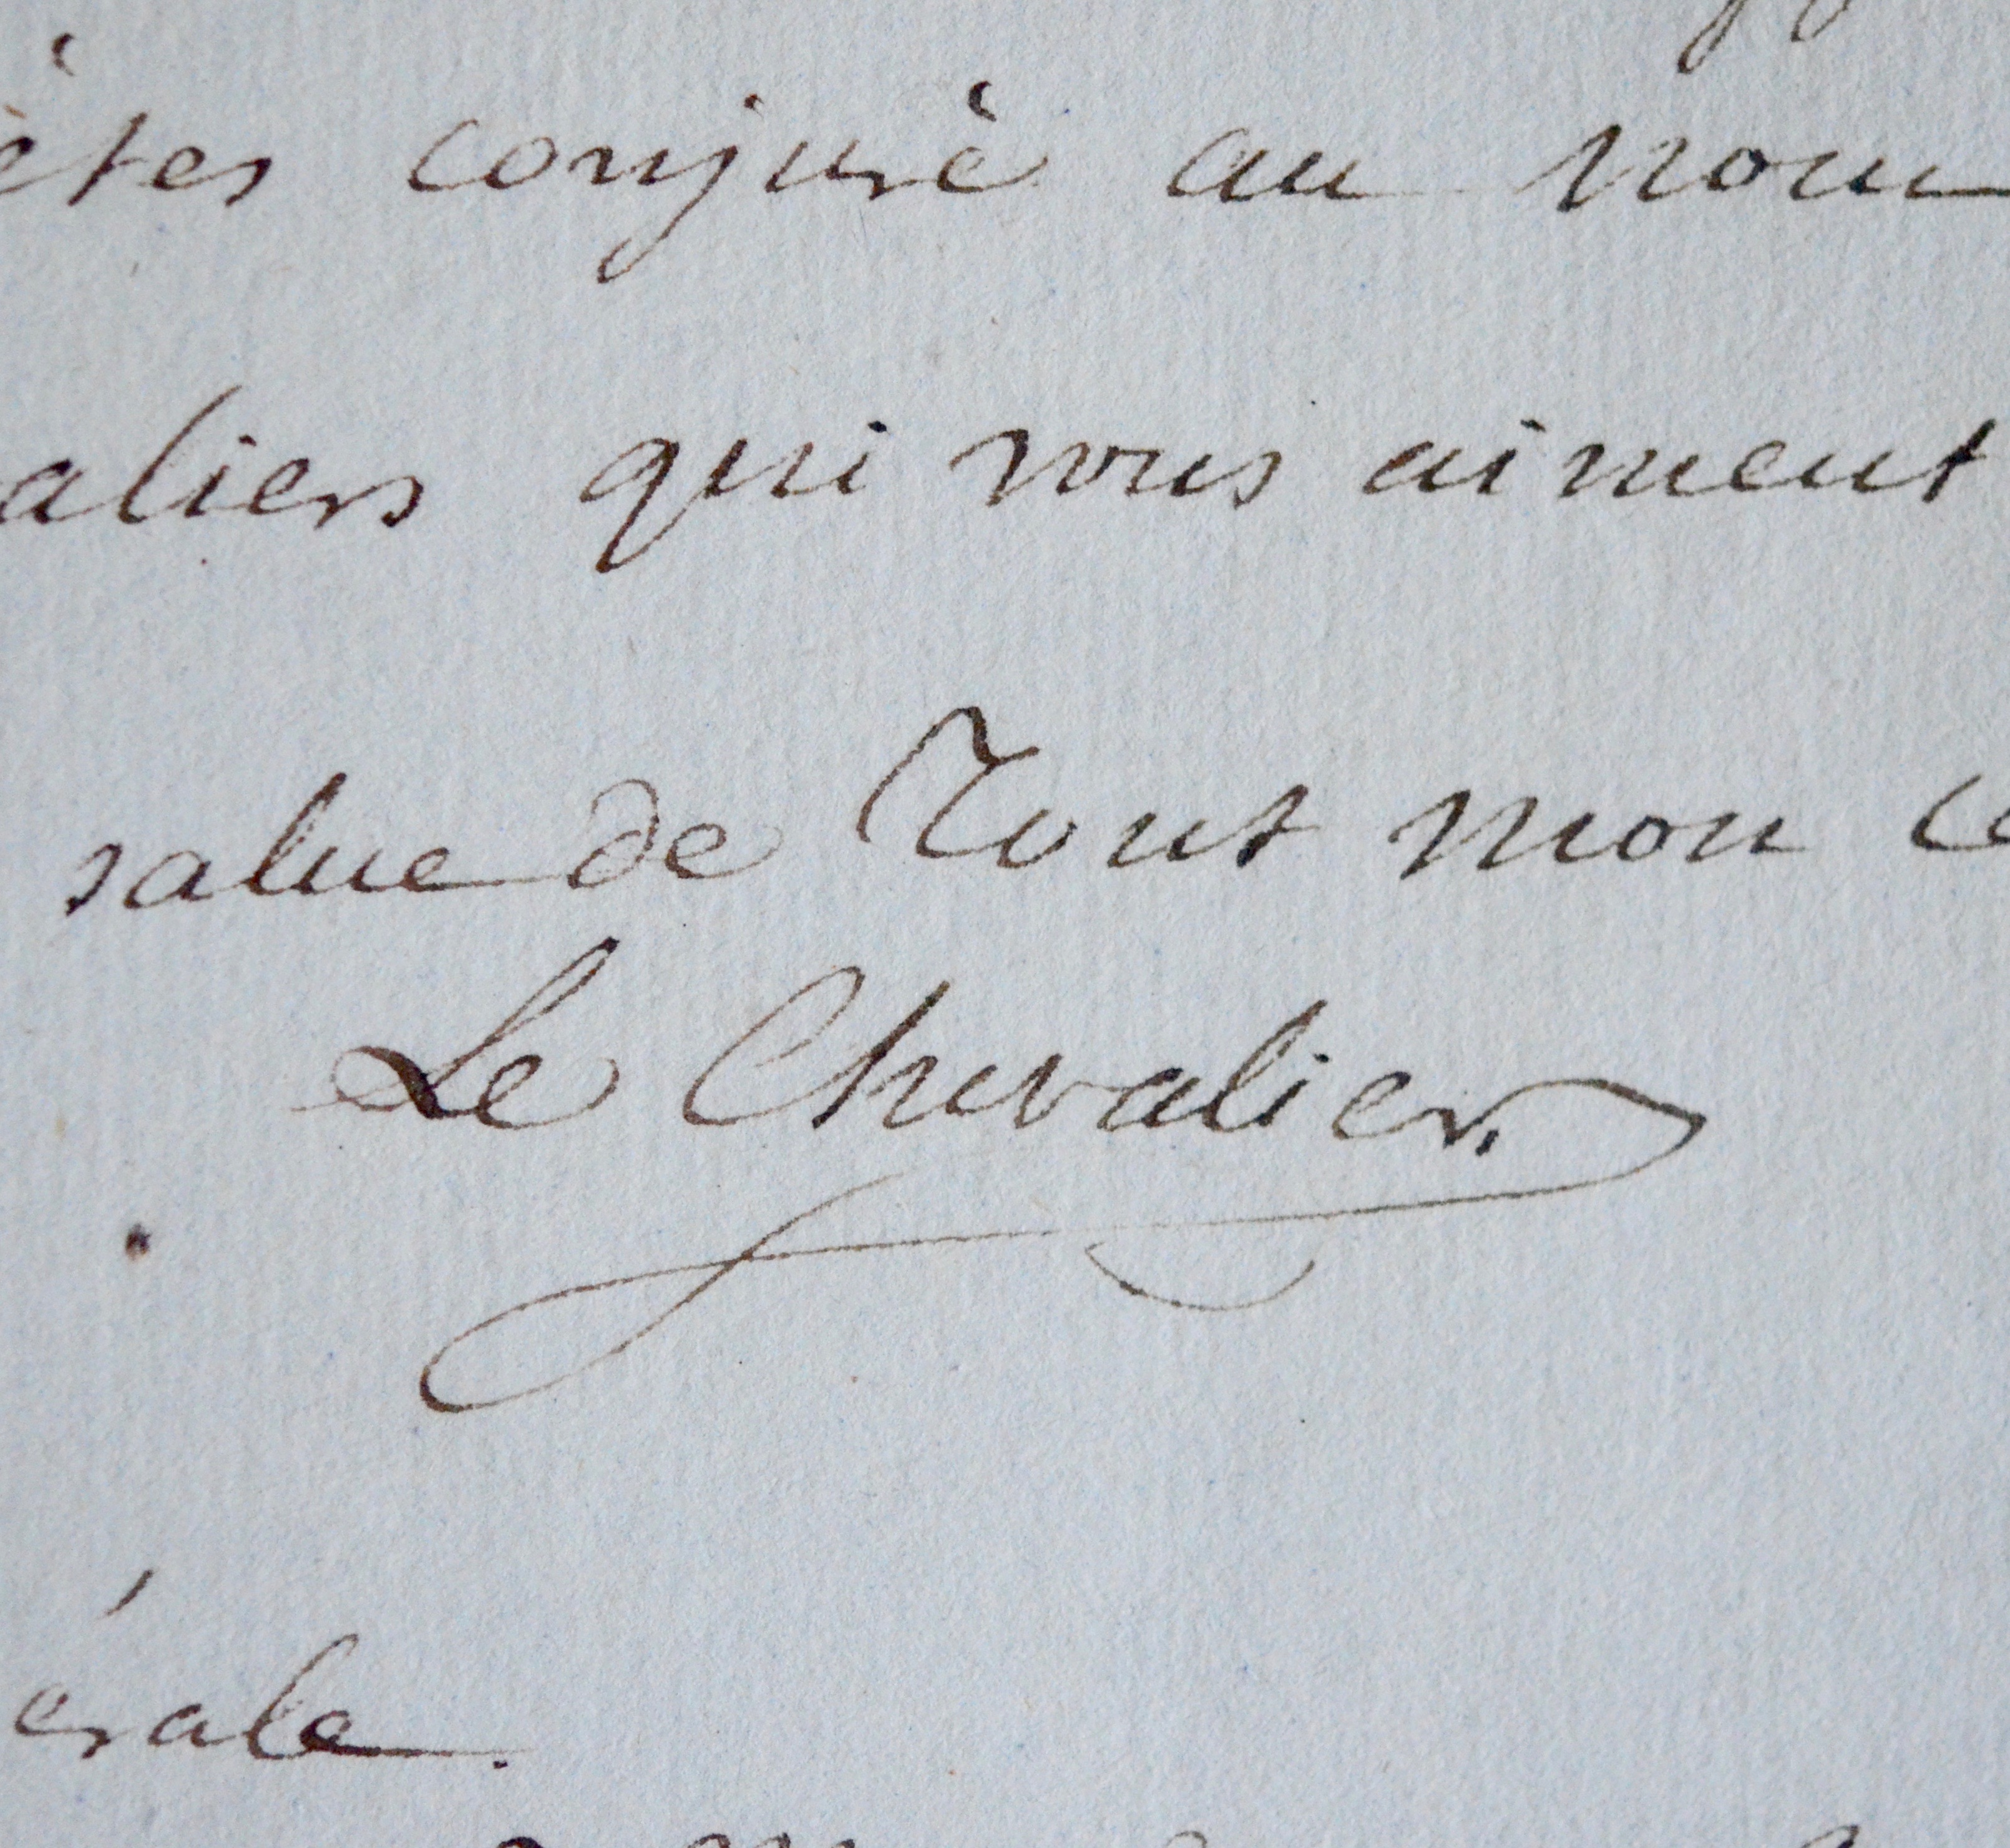 êtes conjuré au nom
aliers qui vous aiment
salue de Tout mon
Le Chevalier.
érale.